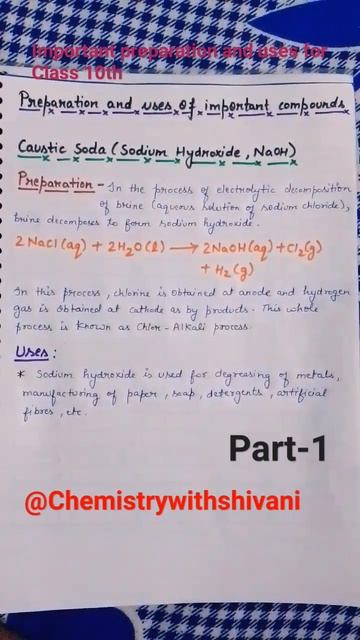 Important preparation and uses for
Class 10th
Preparation and uses of important compounds
Caustic Soda (Sodium Hydroxide, NaOH)
Preparation - In the process of electrolytic decomposition
of brine (aqueous solution of sodium chloride),
brine decomposes to form sodium hydroxide.
2 NaCl (aq) + 2H₂O (l) → 2NaOH (aq) + Cl₂ (g)
+ H₂ (g)
In this process, chlorine is obtained at anode and hydrogen
gas is obtained at cathode as by products. This whole
process is known as Chlor-Alkali process.
Uses:
* Sodium hydroxide is used for degreasing of metals,
manufacturing of paper, soap, detergents, artificial
fibres, etc.
Part-1
@Chemistrywithshivani